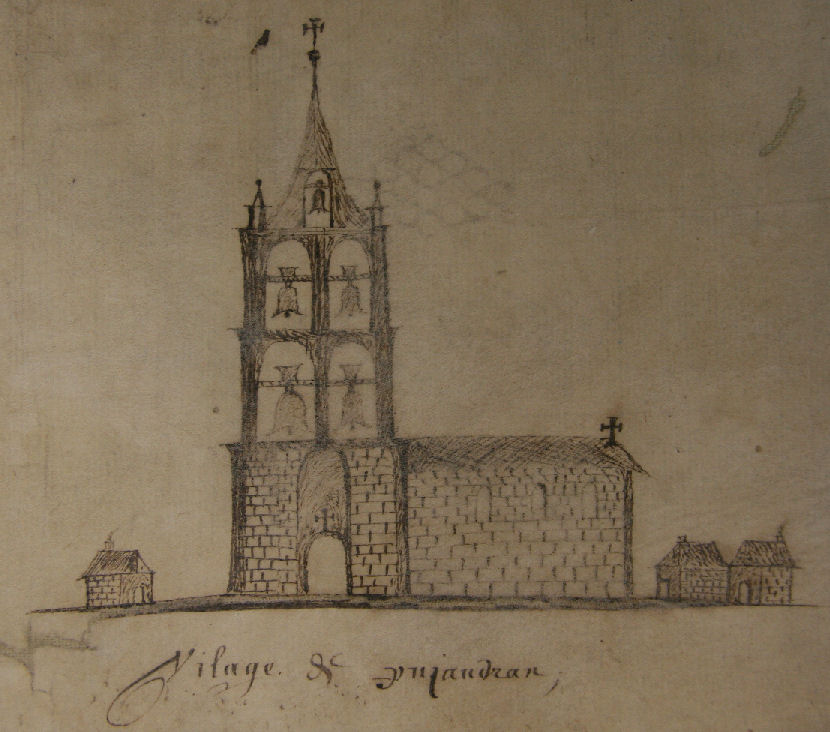 Vilage. de pujaudran,